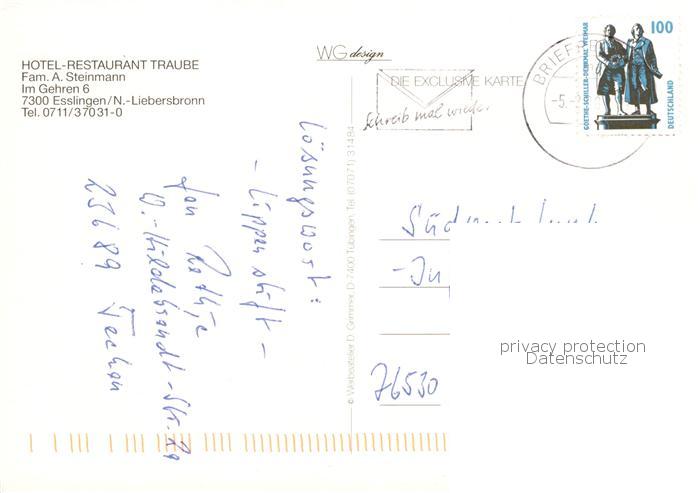 HOTEL-RESTAURANT TRAUBE
Fam. A. Steinmann
Im Gehren 6
7300 Esslingen/N.-Liebersbronn
Tel. 0711/37031-0
WG design
DIE EXCLUSIVE KARTE
Schreib mal wieder
BRIEFZ
-5.-
100
GOETHE-SCHILLER-DENKMAL WEIMAR
DEUTSCHLAND
Lösungswort:
- Lippenstift -
Jan
W.-Hildebrandt-Str.
23689 Techau
© Werbeatelier D. Grimmer, D-7400 Tübingen, Tel. (07071) 31484
Süd
76530
privacy protection
Datenschutz